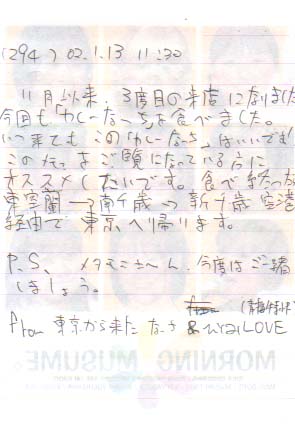 (294) 02.1.13 11:30
11月以来、3度目の来店になりました
今回も「カレーなっち」を食べました。
いつ来てもこの「カレーなっち」はいいです!
このノートをご覧になっている方に
オススメしたいです。食べ終ったら
東室蘭→南千歳→新千歳空港
経由で東京へ帰ります。
P.S. メタモニさ〜ん、今度はご一緒
しましょう。
From 東京から来た なっち & LOVE
MORNING MUSUME